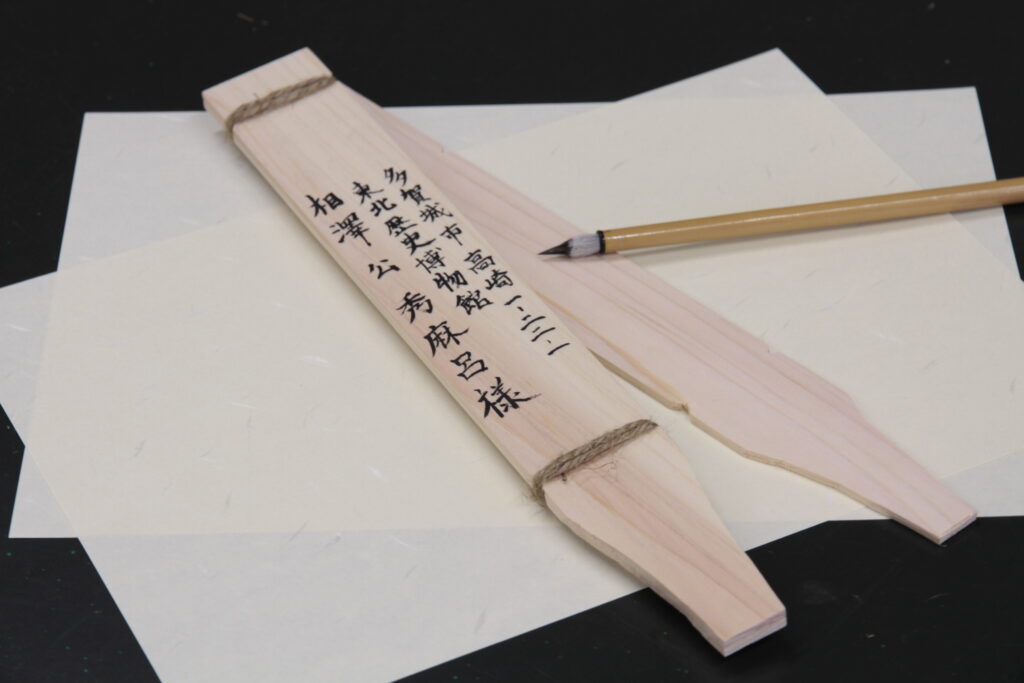 多賀城市高崎一-二二-一
東北歴史博物館
相澤公秀麻呂様